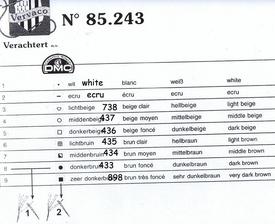 Vervaco
N° 85.243
Verachtert n.v.
DMC
1 • wit white blanc weiß white
2 – ecru ecru écru ecru ecru
3 lichtbeige 738 beige clair hellbeige light beige
4 middenbeige 437 beige moyen mittelbeige middle beige
5 donkerbeige 436 beige foncé dunkelbeige dark beige
6 lichtbruin 435 brun clair hellbraun light brown
7 middenbruin 434 brun moyen mittelbraun middle brown
8 donkerbruin 433 brun foncé dunkelbraun dark brown
9 zeer donkerbruin 898 brun très foncé sehr dunkelbraun very dark brown
1 2